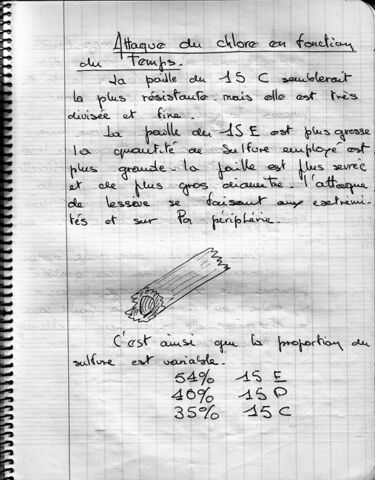 Attaque du chlore en fonction
du Temps.
La paille du 15 C semblerait
la plus résistante mais elle est très
divisée et fine.
La paille du 15 E est plus grosse
la quantité de sulfure employé est
plus grande. la paille est plus serrée
et de plus gros diamètre. l'attaque
de lessive se faisant aux extremi-
tés et sur la périphérie.
C'est ainsi que la proportion du
sulfure est variable.
54% 15 E
40% 15 D
35% 15 C